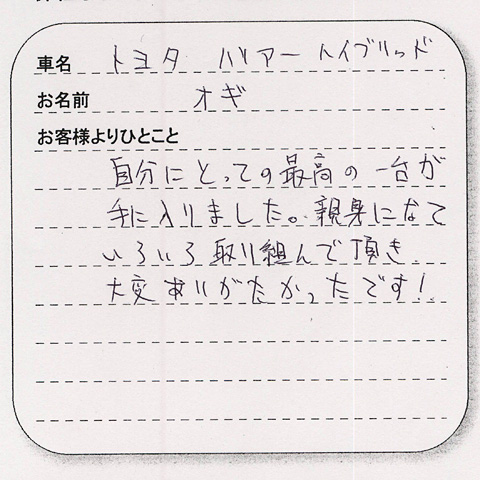 車名 トヨタ ハリアー ハイブリッド
お名前 オギ
お客様よりひとこと
自分にとっての最高の一台が
手に入りました。親身になて
いろいろ取り組んで頂き
大変ありがたかったです!